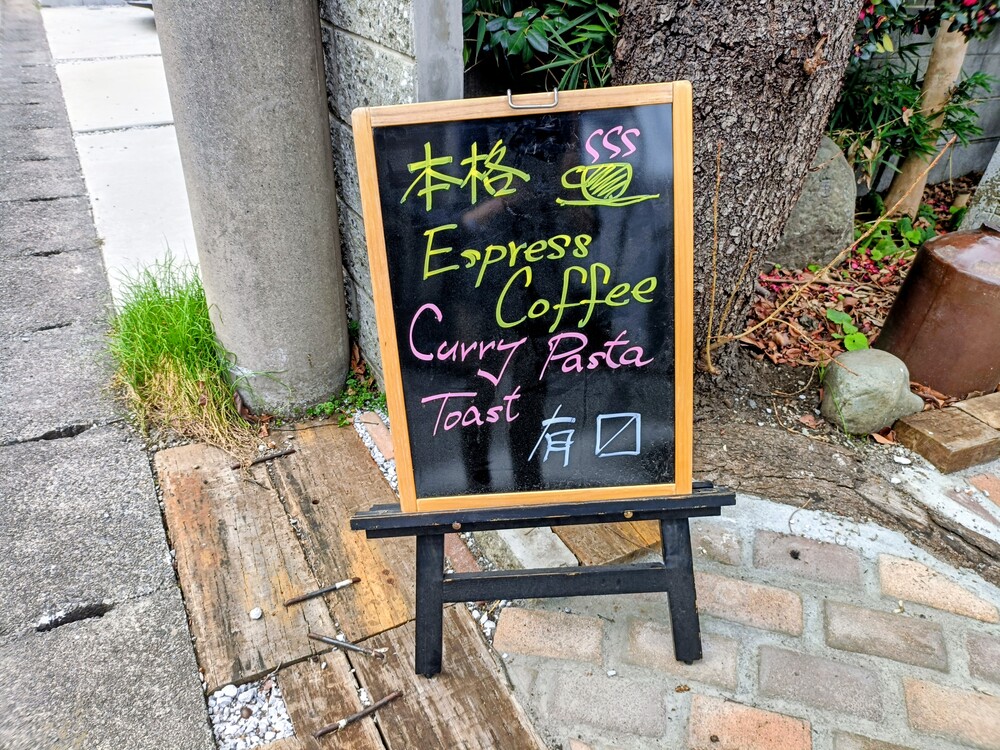 本格
Espress
Coffee
Curry Pasta
Toast 有〼